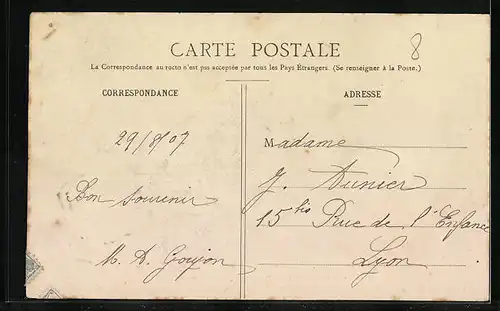 8
CARTE POSTALE
La Correspondance au recto n'est pas acceptée par tous les Pays Étrangers. (Se renseigner à la Poste.)
CORRESPONDANCE
ADRESSE
29/8/07
Bon souvenir
M. A. Goujon
Madame
J. Aunier
15 bis Rue de l'Enfance
Lyon